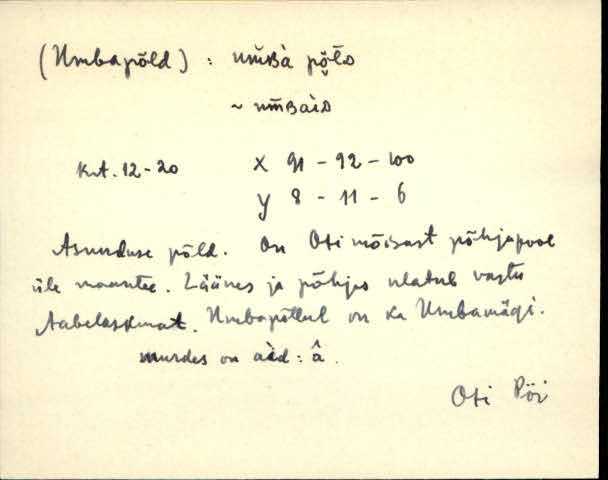 (Umbapõld) : um̆ʙà pə̑lᴅ
~ um̄ʙàiᴅ
Krt. 12-20 X 91 - 92 - 100
y 8 - 11 - 6
Asunduse põld. On Oti mõisast põhjapool
üle maantee. Läänes ja põhjas ulatub vastu
Umbapõllul on ka Umbamägi.
murdes on àid : â.
Oti Pöi